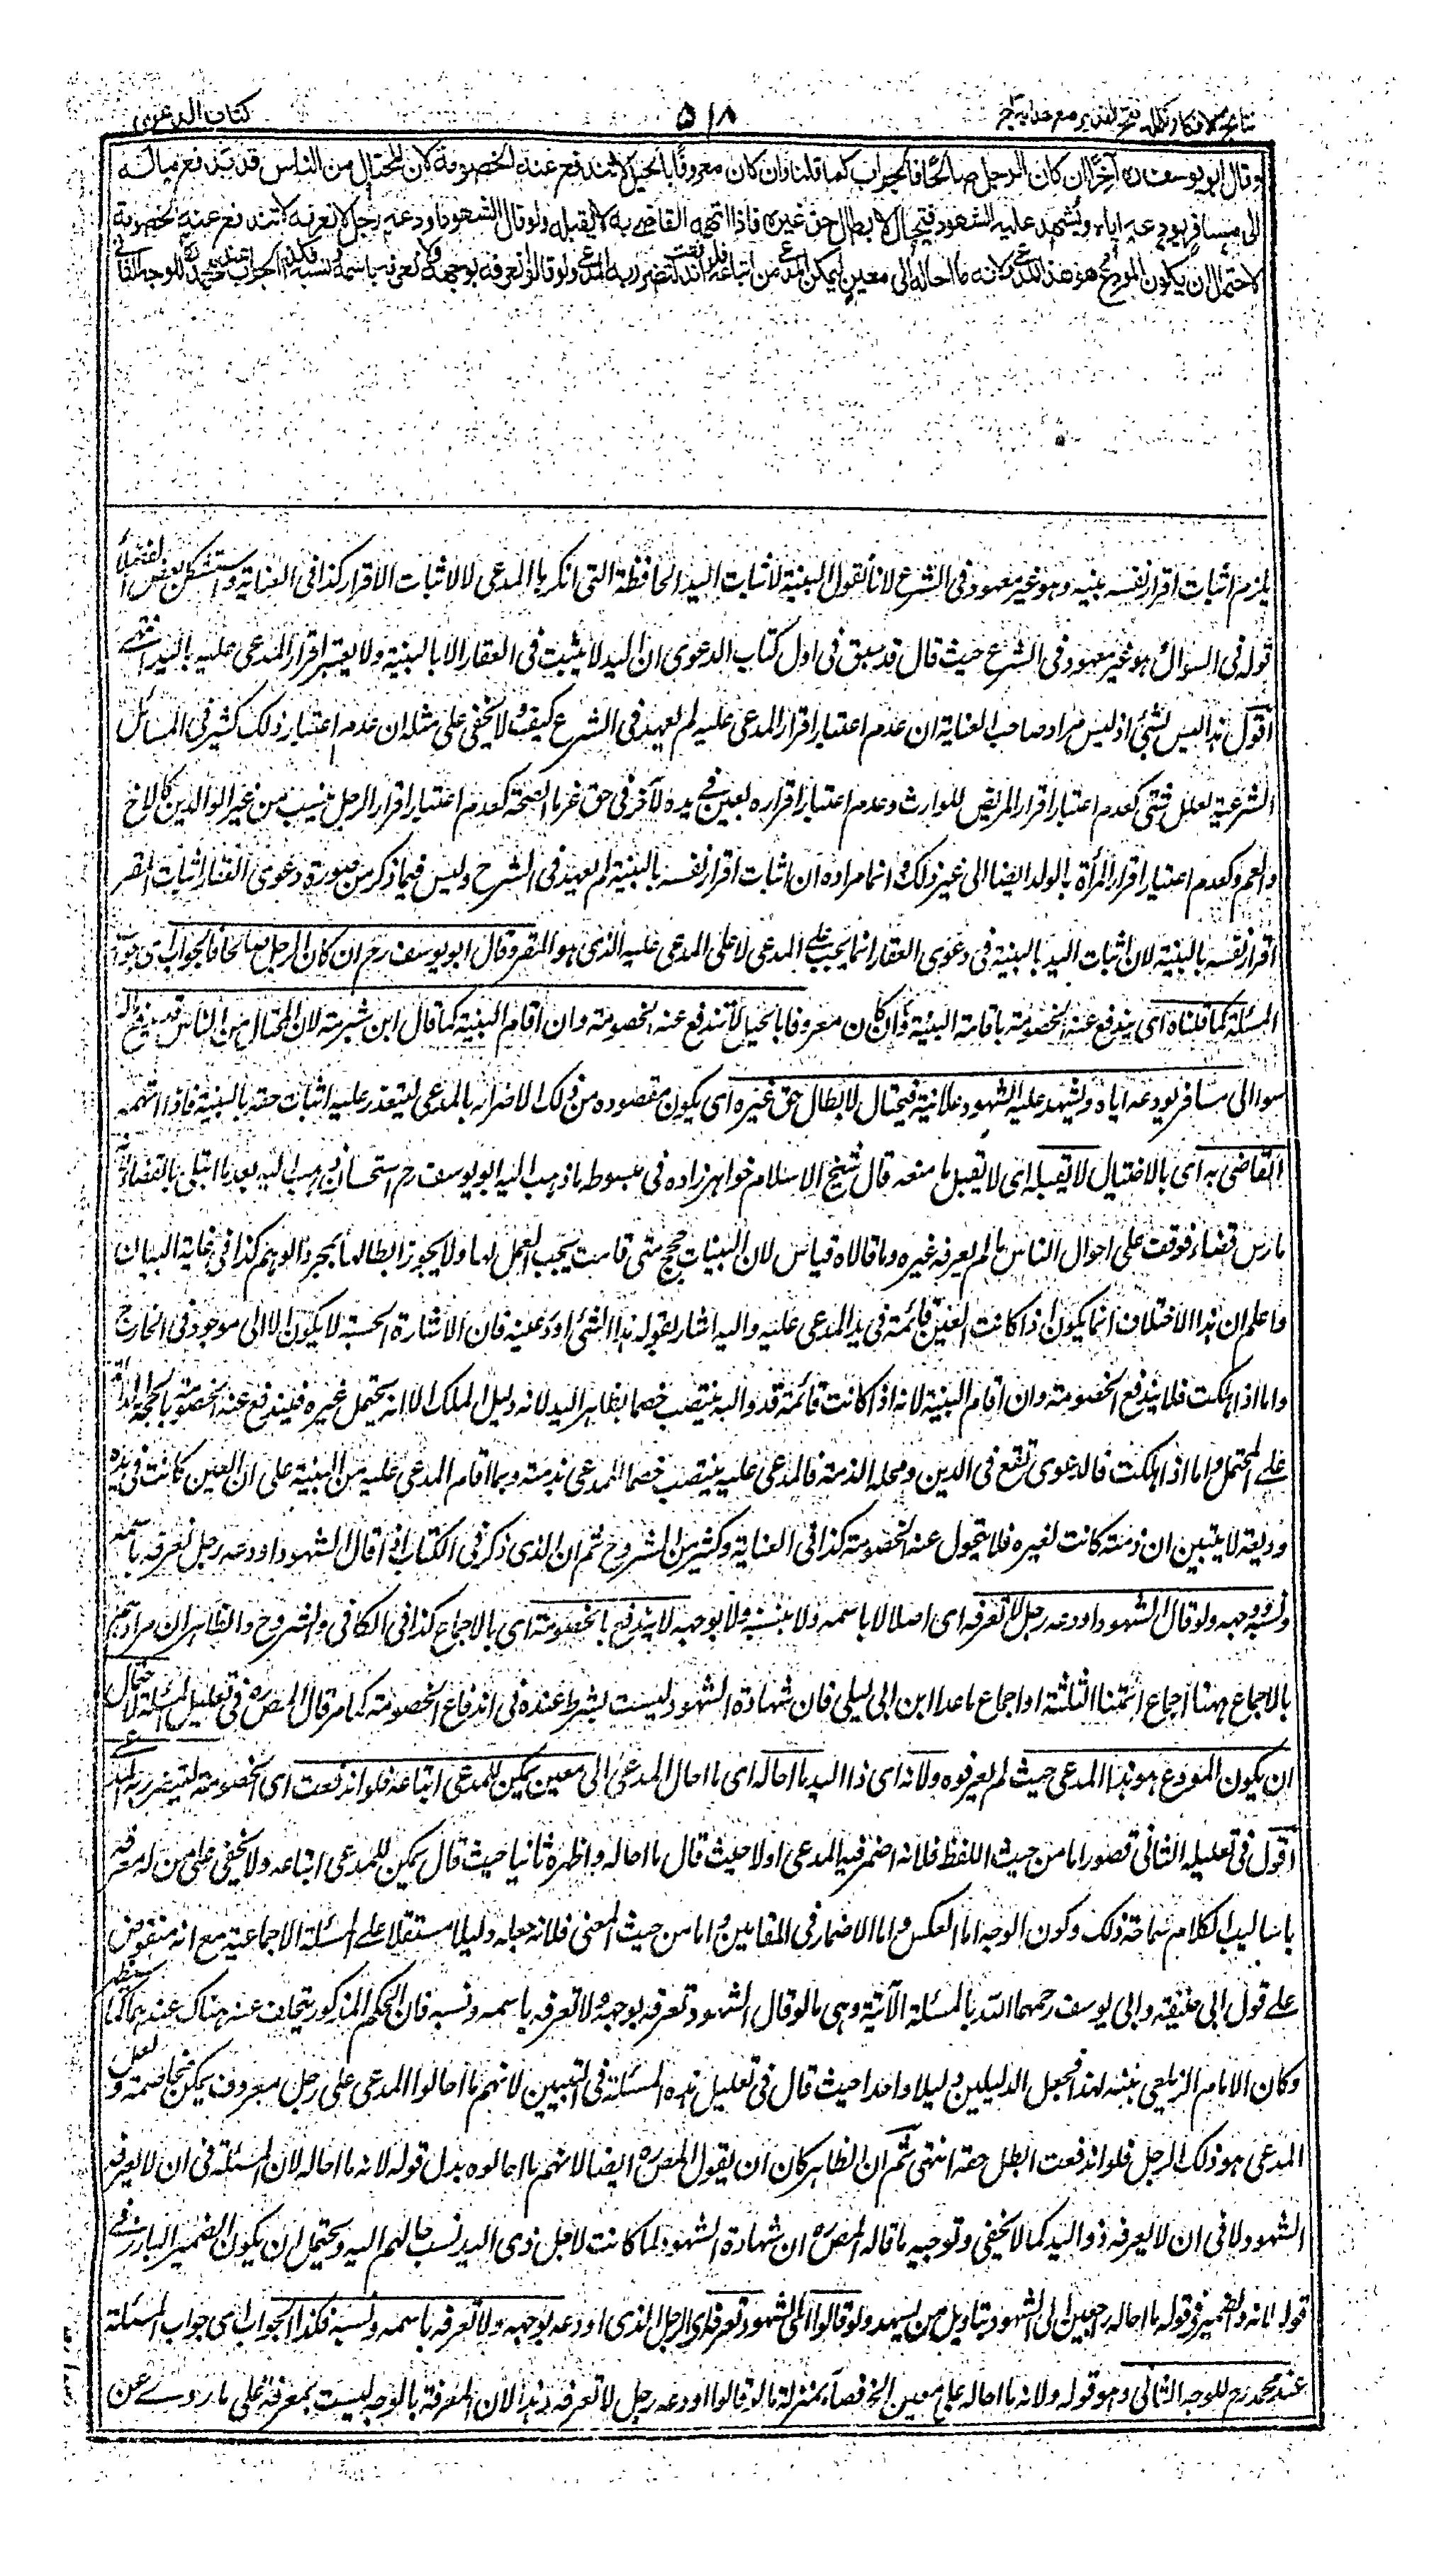 نتائج الافكار تكملة فتح القدير مع هداية ج
٥١٨
كتاب الدعوى
وقال ابو يوسف ره آخرًا ان كان الرجل صالحًا فالجواب كما قلنا وان كان معروفًا بالحيل لا تندفع عنه الخصومة لان المحتال من الناس قد يدفع ماله
الى مسافر يودعه اياه ويُشهد عليه الشهود فيحتال لابطال حق غيره فاذا اتهمه القاضي به لا يقبله ولو قال الشهود اودعه رجل لا نعرفه لا تندفع عنه الخصومة
لاحتمال ان يكون المودِع هو هذا المدعي ولانه ما احاله الى معين ليمكن المدعي من اتباعه فلو اندفعت لتضرر به المدعي ولو قالوا نعرفه بوجهه ولا نعرفه باسمه ونسبه فكذلك الجواب عند محمد ره للوجه الثاني
يلزم اثبات اقرار نفسه ببينة وهو غير معهود في الشرع لانا نقول البينة لاثبات اليد الحافظة التي انكرها المدعي لا لاثبات الاقرار كذا في العناية واستشكل بعض الفضلاء
قوله في السوال وهو غير معهود في الشرع حيث قال قد سبق في اول كتاب الدعوى ان اليد لا يثبت في العقار الا بالبينة ولا يعتبر اقرار المدعى عليه باليد انتهى
اقول هذا ليس بشئ اذ ليس مراد صاحب العناية ان عدم اعتبار اقرار المدعى عليه لم يعهد في الشرع كيف ولا يخفى على مثله ان عدم اعتبار ذلك كثير في المسائل
الشرعية لعلل شتى كعدم اعتبار اقرار المريض للوارث وعدم اعتبار اقراره بعين في يده لآخر في حق غرماء الصحة كعدم اعتبار اقرار الرجل بنسب من غير الوالدين كالاخ
والعم وكعدم اعتبار اقرار المرأة بالولد ايضا الى غير ذلك وانما مراده ان اثبات اقرار نفسه بالبينة لم يعهد في الشرع وليس فيما ذكر من صورة دعوى العقار اثبات المقر
اقرار نفسه بالبينة لان اثبات اليد بالبينة في دعوى العقار انما يجب على المدعي لا على المدعى عليه الذي هو المقر وقال ابو يوسف رح ان كان الرجل صالحا فالجواب اى جواب
المسئلة كما قلناه اى يندفع عنه الخصومة باقامة البينة وان كان معروفا بالحيل لا تندفع عنه الخصومة وان اقام البينة كما قال ابن شبرمة لان المحتال من الناس قد يدفع ماله
سوا الى مسافر يودعه اياه ويشهد عليه الشهود علانية فيحتال لابطال حق غيره اى يكون مقصوده من ذلك الاضرار بالمدعي ليتعذر عليه اثبات حقه بالبينة فاذا اتهمه
القاضي به اى بالاحتيال لا يقبله اى لا يقبل ما صنعه قال شيخ الاسلام خواهر زاده في مبسوطه ما ذهب اليه ابو يوسف رح استحسان ذهب اليه بعد ما ابتلى بالقضاء
مارس قضاء فوقف على احوال الناس ما لم يعرفه غيره وما قالاه قياس لان البينات حجج متى قامت يجب العمل بها ولا يجوز ابطالها بمجرد الوهم كذا في غاية البيان
واعلم ان هذا الاختلاف انما يكون اذا كانت العين قائمة في يد المدعى عليه واليه اشار بقوله هذا الشئ اودعنيه فان الاشارة الحسية لا يكون الا الى موجود في الخارج
واما اذا هلكت فلا يندفع الخصومة وان اقام البينة لانه اذا كانت قائمة فذو اليد ينتصب خصما بظاهر اليد لانه دليل الملك الا انه يحتمل غيره فيندفع عنه الخصومة بالحجة
على المحتمل واما اذا هلكت فالدعوى تقع في الدين ومحله الذمة فالمدعى عليه ينتصب خصما للمدعي بذمته وبما اقام المدعى عليه من البينة على ان العين كانت في يده
وديعة لا يتبين ان ذمته كانت لغيره فلا يتحول عنه الخصومة كذا في العناية وكثير من الشروح ثم ان الذي ذكر في الكتاب اذا قال الشهود اودعه رجل نعرفه باسمه
ونسبه ووجهه ولو قال الشهود اودعه رجل لا نعرفه اى اصلا لا باسمه ولا بنسبه ولا بوجهه لا يندفع الخصومة اى بالاجماع كذا في الكافي والشروح والظاهر ان مرادهم
بالاجماع ههنا اجماع ائمتنا الثلثة او اجماع ما عدا ابن ابي ليلى فان شهادة الشهود ليست بشرط عنده في اندفاع الخصومة كما مر قال المصره في تعليل المسئلة لاحتمال
ان يكون المودع هو هذا المدعي حيث لم يعرفوه ولانه اى ذا اليد ما احاله اى ما احال المدعي الى معين يمكن للمدعي اتباعه فلو اندفعت اى الخصومة ليتضرر به المدعي
اقول في تعليله الثاني قصور اما من حيث اللفظ فلانه اضمر فيه المدعي اولا حيث قال ما احاله واظهره ثانيا حيث قال يمكن للمدعي اتباعه ولا يخفى على من له معرفة
باساليب الكلام سماجة ذلك وكون الوجه اما العكس واما الاضمار في المقامين واما من حيث المعنى فلانه جعله دليلا مستقلا على المسئلة الاجماعية مع انه منقوض
على قول ابي حنيفة وابي يوسف رحمهما الله بالمسئلة الآتية وهى ما لو قال الشهود نعرفه بوجهه ولا نعرفه باسمه ونسبه فان الحكم المذكور يتخلف عنه هناك عندهما كما سيظهر
وكان الامام الزيلعي تنبه لهذا فجعل الدليلين دليلا واحدا حيث قال في تعليل هذه المسئلة في التبيين لانهم ما احالوا المدعي على رجل معروف يمكن مخاصمته ولعل
المدعي هو ذلك الرجل فلو اندفعت لبطل حقه انتهى ثم ان الظاهر كان ان يقول المصره ايضا لانهم ما احالوه بدل قوله لانه ما احاله لان المسئلة في ان لا يعرفه
الشهود لا في ان لا يعرفه ذو اليد كما لا يخفى وتوجيه ما قاله المصره ان شهادة الشهود لما كانت لاجل ذي اليد نسب حالهم اليه ويحتمل ان يكون الضمير البارز في
قوله لانه والضمير في قوله ما احاله راجعين الى الشهود بتاويل من يشهد ولو قالوا اى الشهود نعرفه اى الرجل الذي اودعه بوجهه ولا نعرفه باسمه ونسبه فكذا الجواب اى جواب المسئلة
عند محمد رح للوجه الثاني وهو قوله ولانه ما احاله على معين الخ فصار بمنزلة ما لو قالوا اودعه رجل لا نعرفه وهذا لان المعرفة بالوجه ليست بمعرفة على ما روى عن